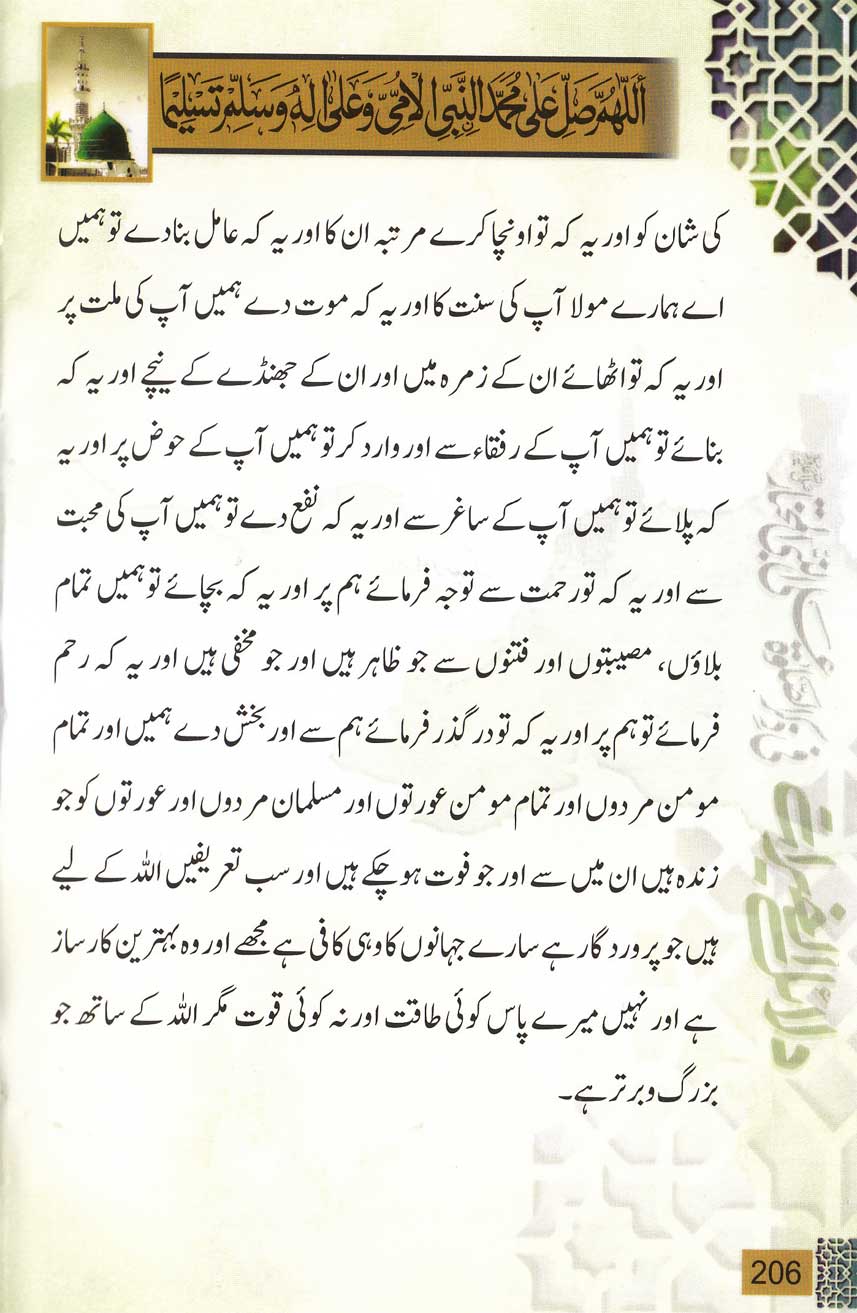 اَللّٰهُمَّ صَلِّ عَلٰى مُحَمَّدِ النَّبِيِّ الْاُمِّيِّ وَعَلٰى اٰلِهٖ وَسَلِّمْ تَسْلِيْمًا
کی شان کو اور یہ کہ تو اونچا کرے مرتبہ ان کا اور یہ کہ عامل بنا دے تو ہمیں
اے ہمارے مولا آپ کی سنت کا اور یہ کہ موت دے ہمیں آپ کی ملت پر
اور یہ کہ تو اٹھائے ان کے زمرہ میں اور ان کے جھنڈے کے نیچے اور یہ کہ
بنائے تو ہمیں آپ کے رفقاء سے اور وارد کر تو ہمیں آپ کے حوض پر اور یہ
کہ پلائے تو ہمیں آپ کے ساغر سے اور یہ کہ نفع دے تو ہمیں آپ کی محبت
سے اور یہ کہ تو رحمت سے توجہ فرمائے ہم پر اور یہ کہ بچائے تو ہمیں تمام
بلاؤں، مصیبتوں اور فتنوں سے جو ظاہر ہیں اور جو مخفی ہیں اور یہ کہ رحم
فرمائے تو ہم پر اور یہ کہ تو درگذر فرمائے ہم سے اور بخش دے ہمیں اور تمام
مومن مردوں اور تمام مومن عورتوں اور مسلمان مردوں اور عورتوں کو جو
زندہ ہیں ان میں سے اور جو فوت ہو چکے ہیں اور سب تعریفیں اللہ کے لیے
ہیں جو پروردگار ہے سارے جہانوں کا وہی کافی ہے مجھے اور وہ بہترین کارساز
ہے اور نہیں میرے پاس کوئی طاقت اور نہ کوئی قوت مگر اللہ کے ساتھ جو
بزرگ و برتر ہے۔
دلائل الخیرات
206